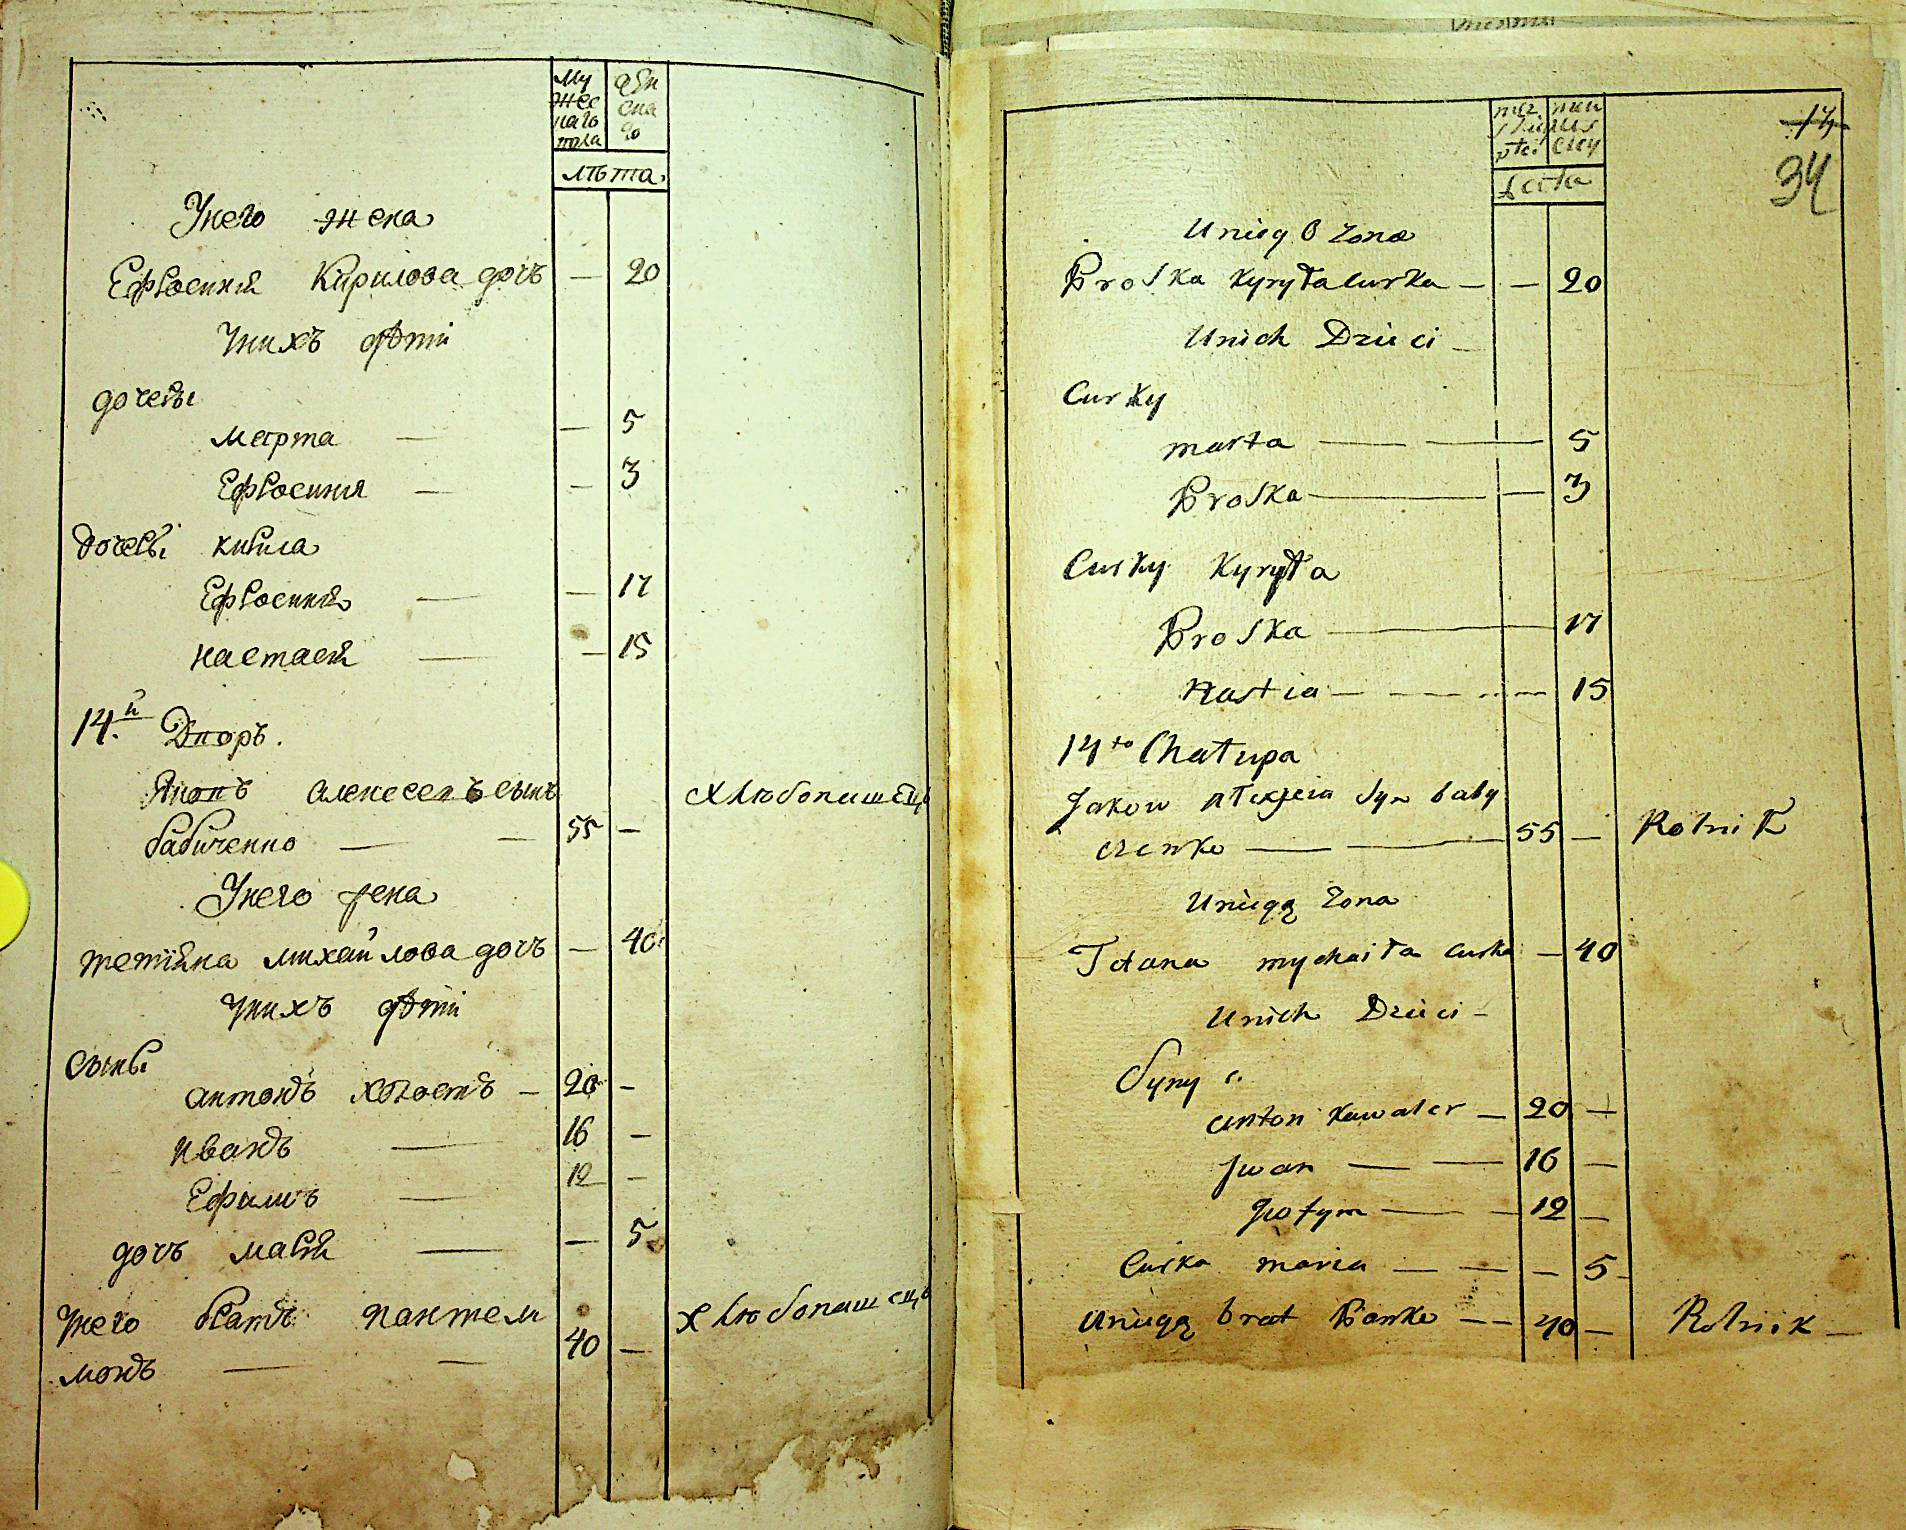 Му
жес
каго
пола
жен
ска
го
лѣта
Унего жена
Ефросиния Кирилова дочь — 20
Унихъ дѣти
дочеры
Марта — — 5
Ефросиния — — 3
Дочеры Кирила
Ефросиния — — 17
Настасия — — 15
14.й Дворъ.
Яковъ Алексеевъ сынъ хлѣбопашецъ
бабиченко — — 55 —
Унего жена
Тетіяна Михайлова дочь — 40
Унихъ дѣти
Сыны
Антонъ холостъ — 20 —
Иванъ — 16 —
Ефимъ — 12 —
дочь Мария — — 5
Унего братъ Пантели хлѣбопашецъ
монъ — — 40 —
14
34
Lata
Uniego żona
Proska Kyryłacurka — — 20
Unich Dzieci —
Curky
Marta — — 5
Proska — — 3
Curky Kyryła
Proska — 17
Nastia — — — 15
14to Chałupa
Jakow Ałexjeia Syn baby
czenko — — 55 — Rolnik
Uniegą żona
Tetana Mychaiła curka — 40
Unich Dzieci —
Syny
Anton Kawaler — 20 —
Jwan — — 16 —
Jvofym — — 12 —
Curka Maria — — — 5
Uniegą brat Panko — — 40 — Rolnik —